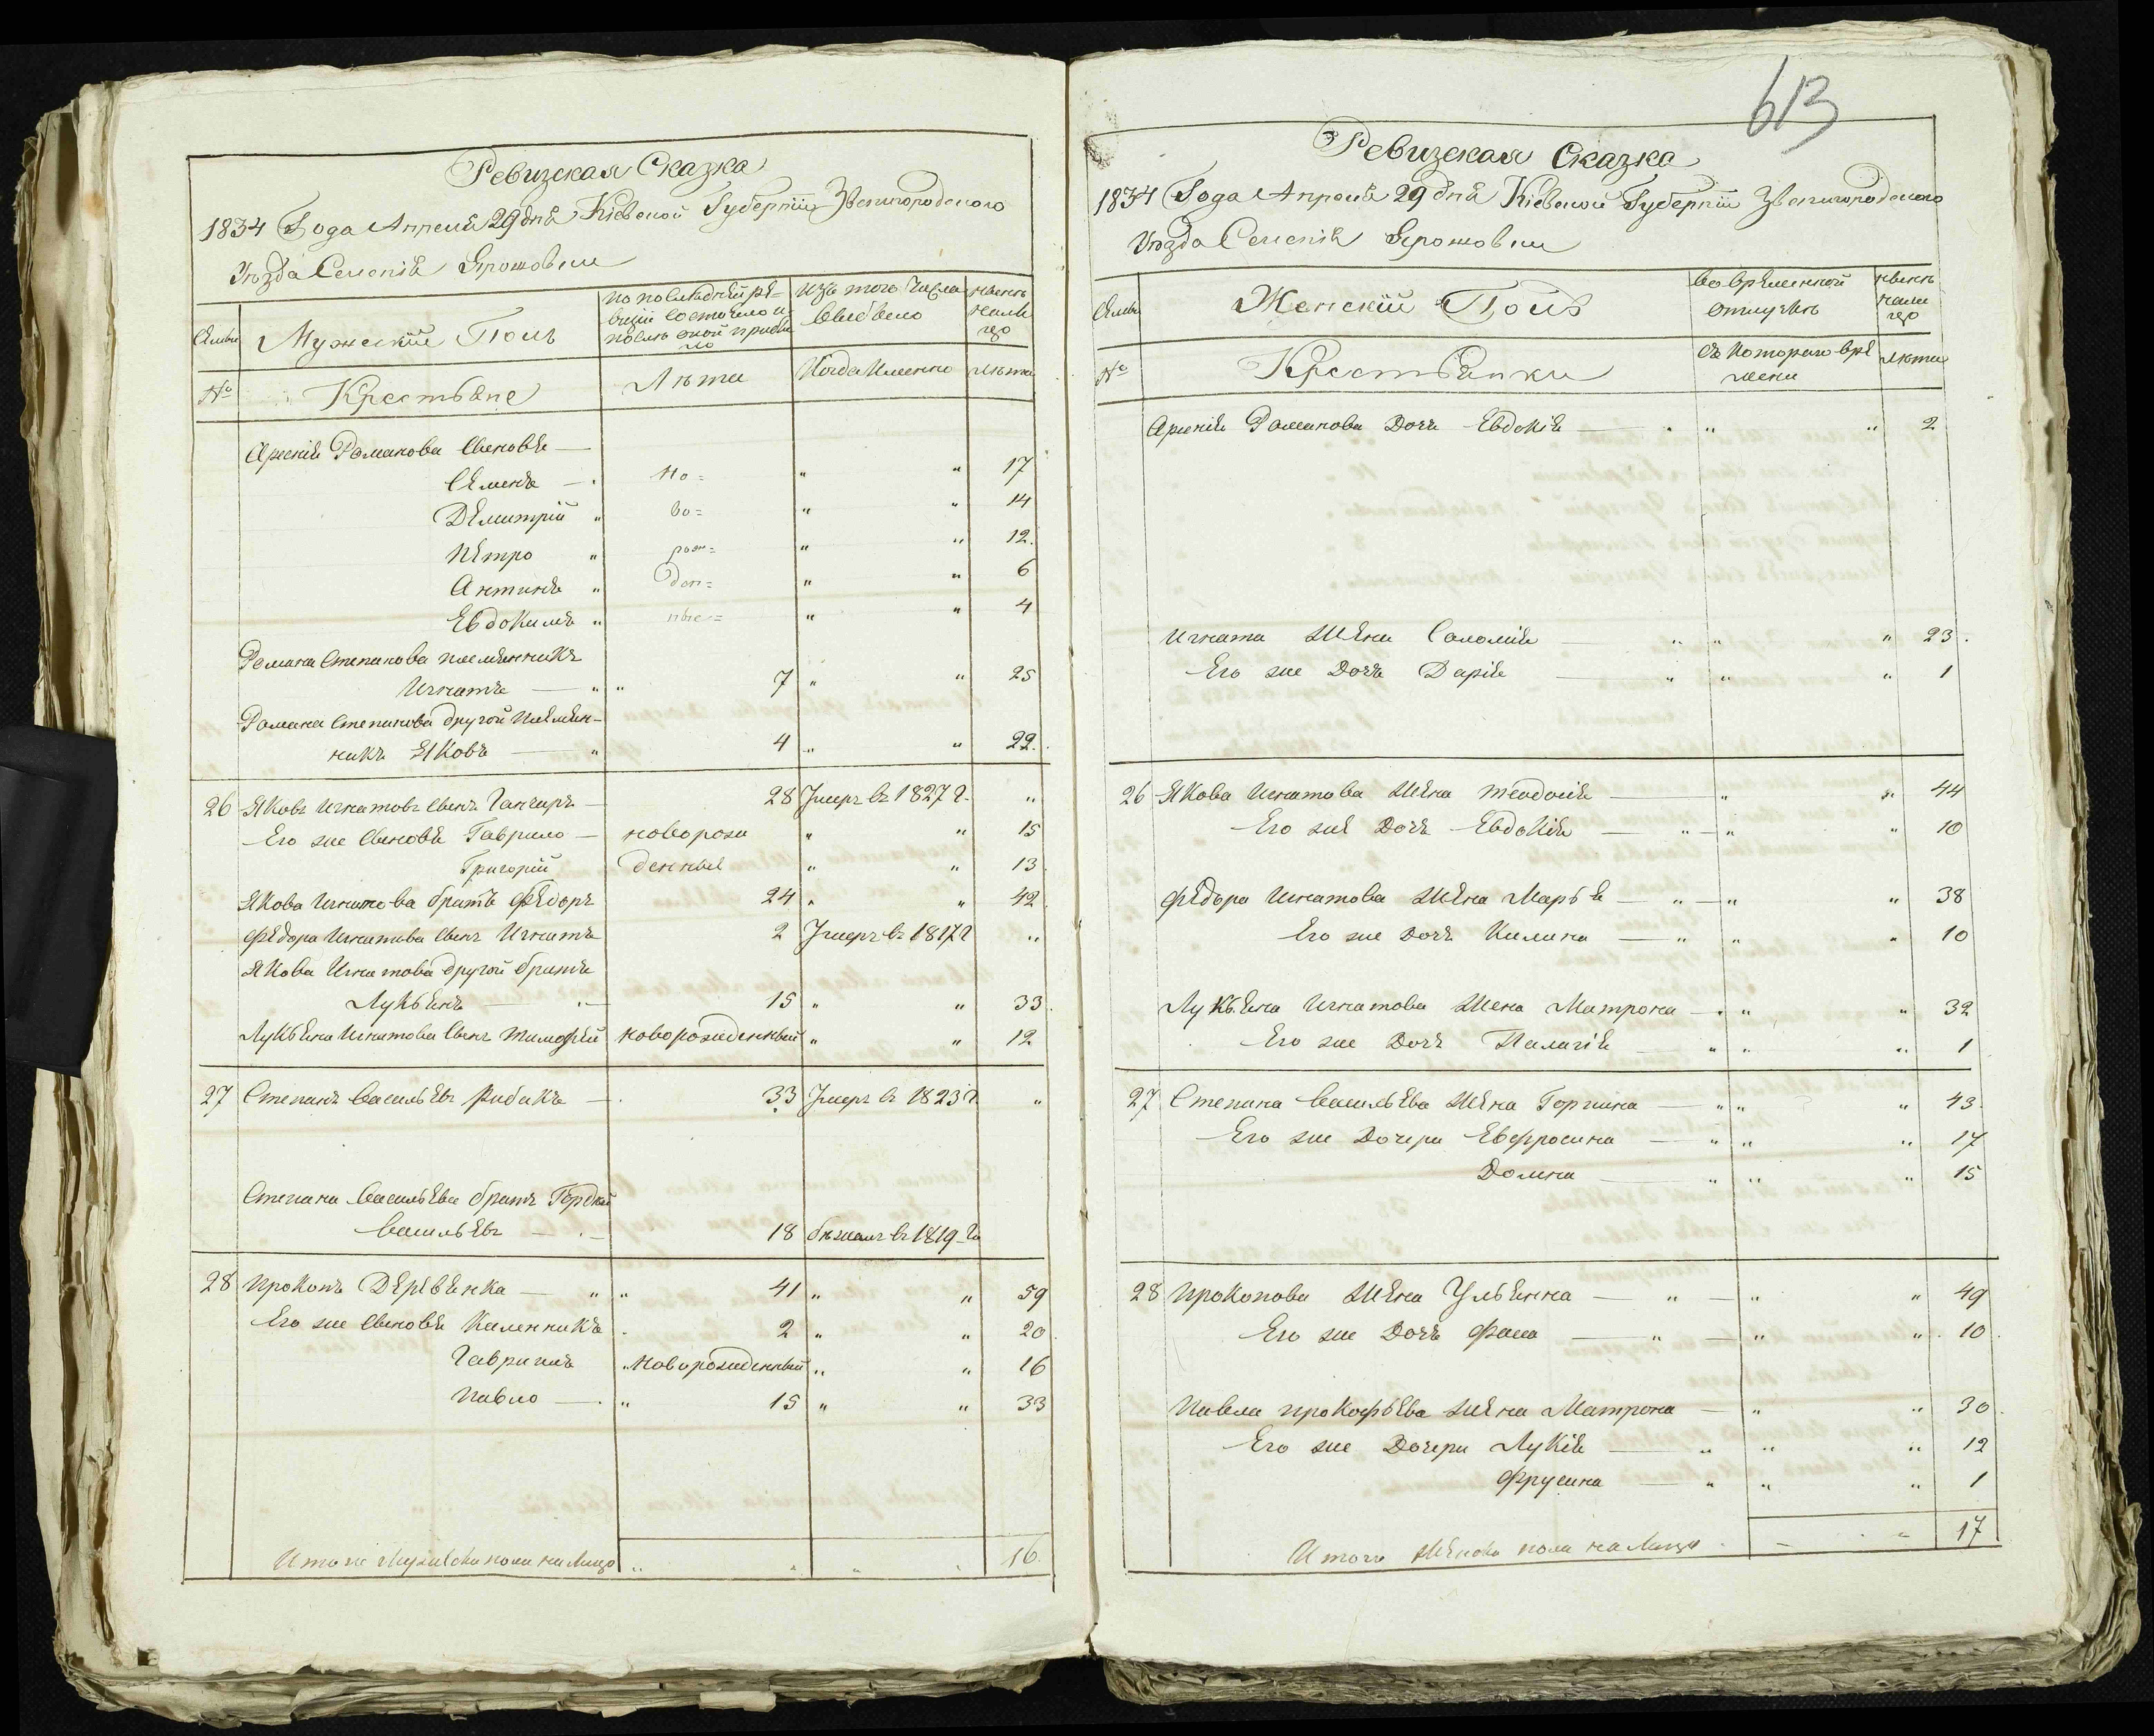 Ревизская Сказка
1834 Года Апреля 29 дня Кіевской Губерніи Звенигородского
Уѣзда Селенія Ярошовки
Семьи
Мужескій Полъ
По послѣдней ре-
визіи состояло и
послѣ оной прибы
ло
Изъ того числа
выбыло
Нынѣ
нали
цо
№
Крестьяне
Лѣта
Когда Именно
Лѣта
Арсенія Романова Сыновья —
Семенъ — но= " " 17
Демитрій " во= " " 14
Петро " рож= " " 12.
Антинъ " ден= " " 6
Евдокимъ " ные= " " 4
Романа Степанова племянникъ
Игнатъ — " " 7 " " 25
Романа Степанова другой племян-
никъ Яковъ — " 4 " " 22.
26 Яковъ Игнатовъ Сынъ Ганчаръ — 28 Умеръ въ 1827 г. "
Его же Сыновья Гаврило — новорож " " 15
Григорій денные " " 13
Якова Игнатова братъ Федоръ 24 " " 42
Федора Игнатова Сынъ Игнатъ 2 Умеръ въ 1817 г "
Якова Игнатова другой братъ
Лукьянъ — " — 15 " " 33
Лукьяна Игнатова Сынъ Тимофей новорожденный " " 12
27 Степанъ Васильевъ Рибакъ — 33 Умеръ въ 1823 г. "
Степана Васильева братъ Гордей
Васильевъ — 18 бежалъ въ 1819 го
28 Прокопъ Деревянка — " " 41 " " 59
Его же Сыновья Каленникъ 2 " " 20
Гаврилъ новорожденный " " 16
Павло — " 15 " " 33
Итого Мужеска пола на лицо " " " 16.
613
Ревизская Сказка
1834 Года Апреля 29 дня Кіевской Губерніи Звенигородского
Уѣзда Селенія Ярошовки
Семьи
Женскій Полъ
Во временной
отлучкѣ
Нынѣ
нали
цо
№
Крестьянки
Съ котораго вре
мени
Лѣта
Арсенія Романова Дочь Евдокія — " " " 2
Игната Жена Соломія — " " " 23.
Его же Дочь Дарія — " " " 1
26 Якова Игнатова Жена Теодосія — " " 44
Его же Дочь Евдокія — " — " " 10
Федора Игнатова Жена Марья — " — " " 38
Его же Дочь Килина — " " " 10
Лукьяна Игнатова Жена Матрона — " " " 32
Его же Дочь Пелагія — " " " 1
27 Степана Васильева Жена Горпина — " " " 43.
Его же Дочери Евфросина — " " " 17
Домна — " " " 15
28 Прокопова Жена Ульянна — " — " " 49
Его же Дочь Фама — " — " " 10
Павла Прокофьева Жена Матрона — " " 30.
Его же Дочери Лукія — " " " 12
Фрусина — " " " 1
Итого Женска пола на лицо — " 17